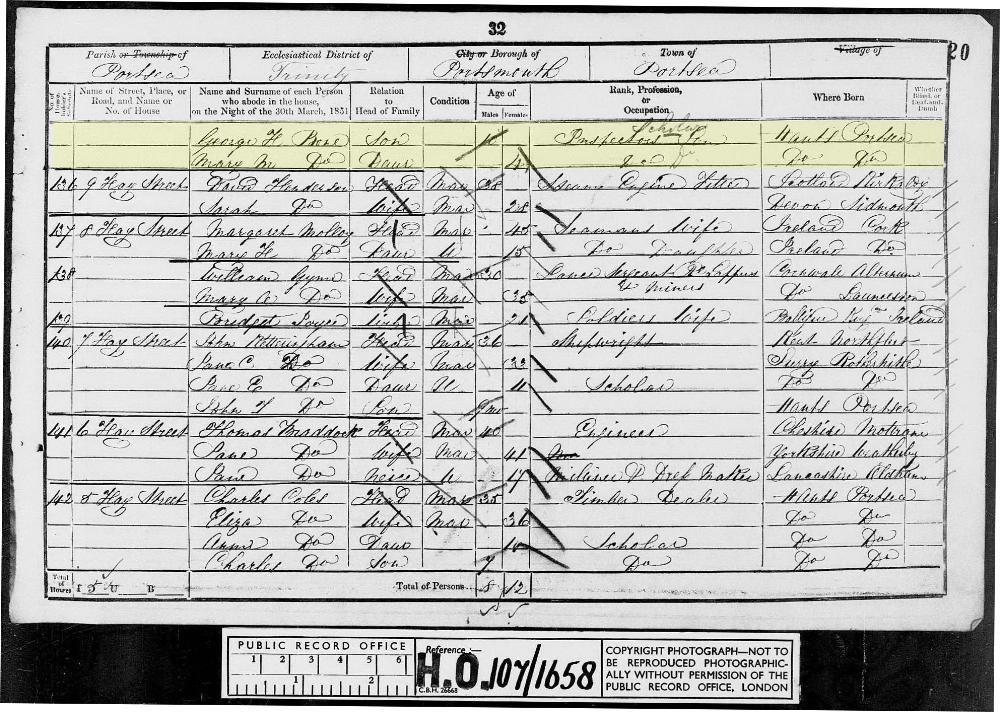 32
20
Parish or Township of Ecclesiastical District of City or Borough of Town of Village of
Portsea Trinity Portsmouth Portsea
Name of Street, Place, or Road, and Name or No. of House
Name and Surname of each Person who abode in the house, on the Night of the 30th March, 1851
Relation to Head of Family
Condition
Age of
Males Females
Rank, Profession, or Occupation
Where Born
Whether Blind, or Deaf-and-Dumb
George H Son Scholar Hants Portsea
Mary M Do Daur 4 Do Do Do
136 9 Hay Street David Henderson Head Mar 28 Steam Engine Fitter Scotland
Sarah Do Wife Mar 28 Devon Sidmouth
137 8 Hay Street Margaret Molloy Head Mar 45 Seamans Wife Ireland Cork
Mary H Do Daur U 15 Do Daughter Ireland Do
138 William Head Mar 30 Lance Sergeant Sappers & Miners Cornwall
Mary A Do Wife Mar 35 Do Launceston
139 Mar 21 Soldiers Wife Ireland
140 7 Hay Street John Head Mar 36 Shipwright Kent Northfleet
Jane C Do Wife Mar 33 Surry Rotherhithe
Jane E Do Daur U 11 Scholar Do Do
John Do Son 9 mo Hants Portsea
141 6 Hay Street Thomas Maddock Head Mar 40 Engineer Cheshire Mottram
Jane Do Wife Mar 41 Yorkshire
Jane Do Niece U 17 Milliner & Dress Maker Lancashire Oldham
142 5 Hay Street Charles Coles Head Mar 35 Timber Dealer Hants Portsea
Eliza Do Wife Mar 36 Do Do
Annie Do Daur 10 Scholar Do Do
Charles Do Son 7 Do Do Do
Total of Houses I 5 U B Total of Persons 8 12
PUBLIC RECORD OFFICE
1 2 3 4 5 6
1 2
Reference :—
H.O. 107/1658
C.B.H. 26668
COPYRIGHT PHOTOGRAPH—NOT TO
BE REPRODUCED PHOTOGRAPHIC-
ALLY WITHOUT PERMISSION OF THE
PUBLIC RECORD OFFICE, LONDON